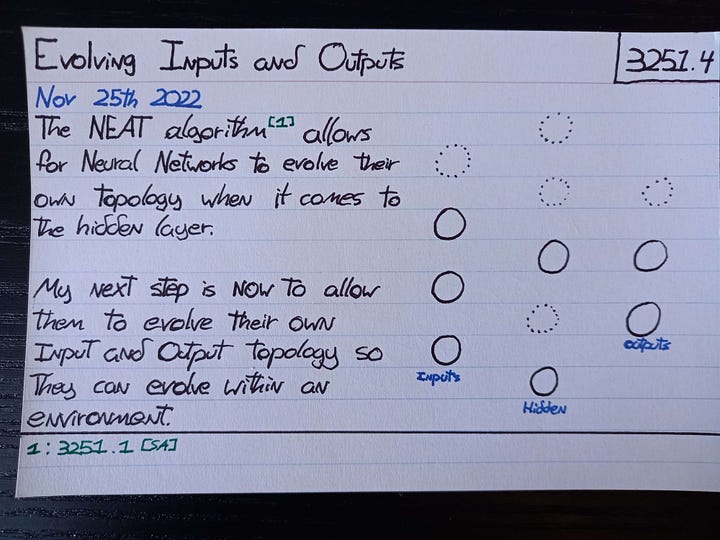 Evolving Inputs and Outputs
3251.4
Nov 25th 2022
The NEAT algorithm[1] allows
for Neural Networks to evolve their
own topology when it comes to
the hidden layer.
My next step is now to allow
them to evolve their own
Input and Output topology so
They can evolve within an
environment.
Inputs
Hidden
outputs
1: 3251.1 [SA]